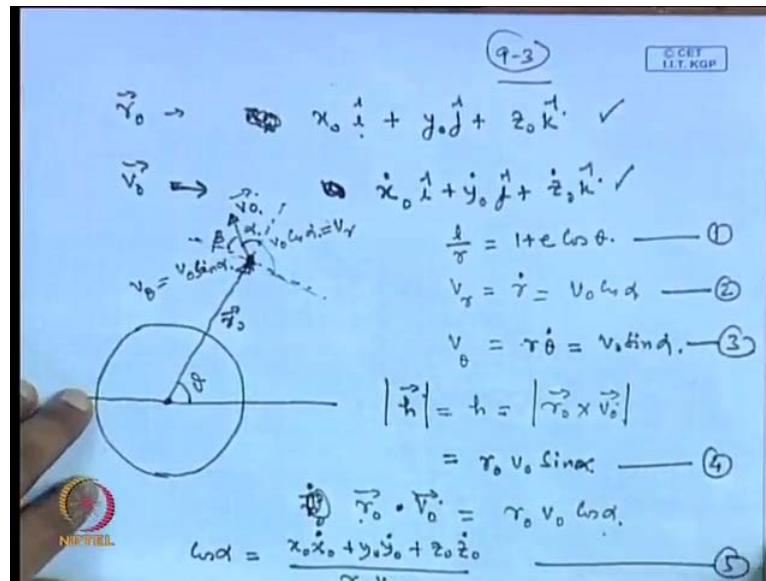 9-3
© CET
I.I.T. KGP
r⃗₀ → x₀ î + y₀ ĵ + z₀ k̂ ✓
v⃗₀ ⇒ ẋ₀ î + ẏ₀ ĵ + ż₀ k̂ ✓
v⃗₀
β α v₀ cos α = vᵣ
v_θ = v₀ sin α
r⃗₀
θ
l/r = 1 + e cos θ. —— ①
vᵣ = ṙ = v₀ cos α —— ②
v_θ = r θ̇ = v₀ sin α. —— ③
|h⃗| = h = |r⃗₀ × v⃗₀|
= r₀ v₀ sin α —— ④
r⃗₀ · v⃗₀ = r₀ v₀ cos α.
cos α = x₀ẋ₀ + y₀ẏ₀ + z₀ż₀ —— ⑤
NPTEL